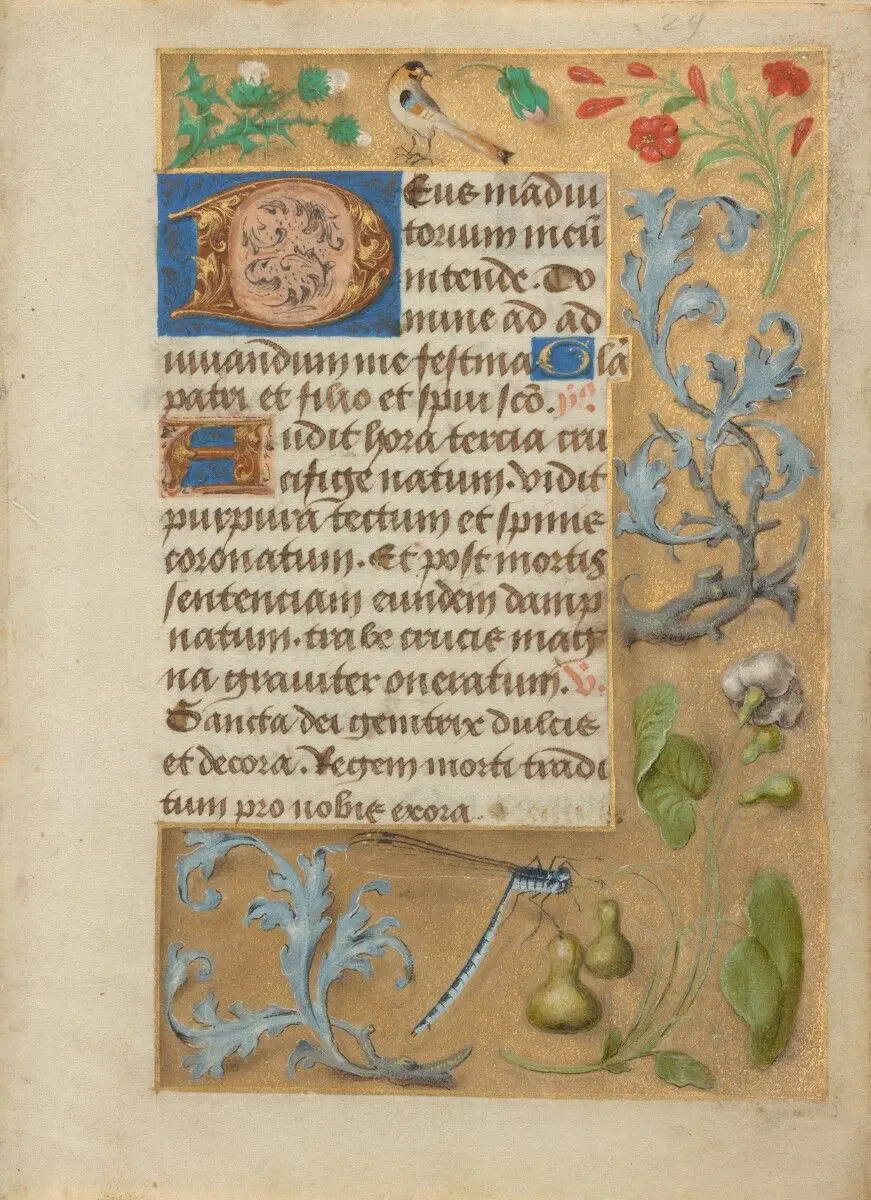 29
Deus in adiu
toriūm meū
intende. Do
mine ad ad
iuuandum me festina Glā
patri et filio et spiu scō. ijā
Audit hora tercia cru
cifige natum. vidit
purpura tectum et spinis
coronatum. Et post mortis
sentenciam eundem damp
natum. trabe crucis mag
na grauiter oneratum. V.
Sancta dei genitrix dulcis
et decora. Regem morti tradi
tum pro nobis exora.